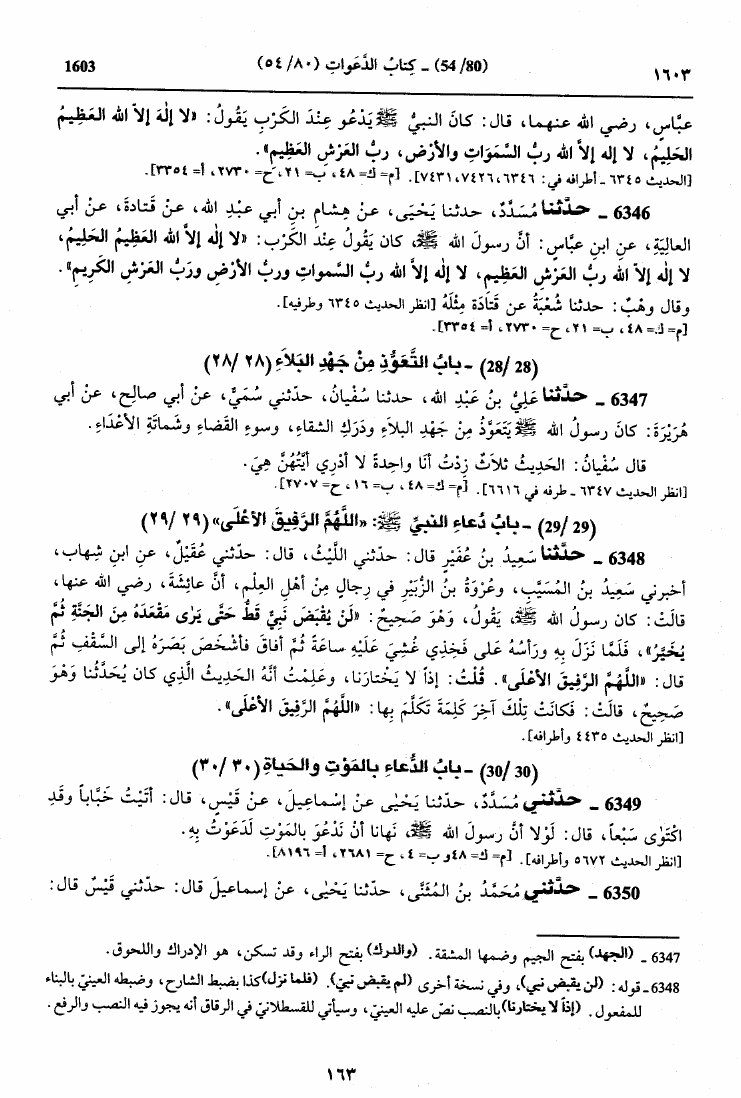 1603 (54/80) ـ كِتابُ الدَّعَواتِ (٥٤/٨٠) ١٦٠٣
عبَّاسٍ، رضي الله عنهما، قال: كانَ النبيُّ ﷺ يَدْعُو عِنْدَ الكَرْبِ يَقُولُ: «لا إلٰهَ إلاَّ الله العَظِيمُ
الحَلِيمُ، لا إله إلاَّ الله ربُّ السَّمٰوَاتِ والأرْضِ، ربُّ العَرْشِ العَظِيمِ».
[الحديث ٦٣٤٥ ـ أطرافه في: ٦٣٤٦، ٧٤٢٦، ٧٤٣١]. [م= ك= ٤٨، ب= ٢١، ح= ٢٧٣٠، أ= ٣٣٥٤].
6346 ـ حدَّثنا مُسَدَّدٌ، حدثنا يَحْيَى، عنْ هِشامِ بنِ أبي عبْدِ الله، عنْ قَتادَةَ، عنْ أبي
العالِيَةِ، عنِ ابنِ عبَّاسٍ: أنَّ رسولَ الله ﷺ، كان يَقُولُ عِنْدَ الكَرْبِ: «لا إلٰه إلاَّ الله العَظِيمُ الحَلِيمُ،
لا إلٰه إلاَّ الله ربُّ العَرْشِ العَظِيمِ، لا إلٰه إلاَّ الله ربُّ السَّموات وربُّ الأرْضِ ورَبُّ العَرْشِ الكَرِيمِ».
وقال وهْبٌ: حدثنا شُعْبَةُ عن قَتَادَةَ مِثْلَهُ [انظر الحديث ٦٣٤٥ وطرفيه].
[م= ك= ٤٨، ب= ٢١، ح= ٢٧٣٠، أ= ٣٣٥٤].
(28/28) ـ بابُ التَّعَوُّذِ مِنْ جَهْدِ البَلاَءِ (٢٨/٢٨)
6347 ـ حدَّثنا عَلِيُّ بنُ عَبْدِ الله، حدثنا سُفْيانُ، حدّثني سُمَيٌّ، عنْ أبي صالِحٍ، عنْ أبي
هُرَيْرَةَ: كانَ رسولُ الله ﷺ يَتَعَوَّذُ مِنْ جَهْدِ البلاَءِ ودَرَكِ الشقاءِ، وسوءِ القَضاءِ وشَماتَةِ الأعْداءِ.
قال سُفْيانُ: الحَدِيثُ ثلاَثٌ زِدْتُ أنا واحِدةً لا أدْرِي أيَّتُهُنَّ هِيَ.
[انظر الحديث ٦٣٤٧ ـ طرفه في ٦٦١٦]. [م= ك= ٤٨، ب= ١٦، ح= ٢٧٠٧].
(29/29) ـ بابُ دُعاءِ النبيِّ ﷺ: «اللَّهُمَّ الرَّفِيقَ الأعْلَى» (٢٩/٢٩)
6348 ـ حدَّثنا سَعِيدُ بنُ عُفَيْرٍ قال: حدّثني اللَّيْثُ، قال: حدّثني عُقَيْلٌ، عنِ ابنِ شِهاب،
أخبرني سَعِيدُ بنُ المُسَيَّبِ، وعُرْوَةُ بنُ الزُّبَيْرِ في رِجالٍ مِنْ أهْلِ العِلْمِ، أنَّ عائِشَةَ، رضي الله عنها،
قالَتْ: كان رسولُ الله ﷺ، يَقُولُ، وَهْوَ صَحِيحٌ: «لَنْ يُقْبَضَ نَبِيٌّ قَطُّ حَتَّى يَرَى مَقْعَدَهُ مِنَ الجَنَّةِ ثُمَّ
يُخَيَّرُ»، فَلَمَّا نَزَلَ بِهِ ورَأسُهُ على فَخِذِي غُشِيَ عَلَيْهِ ساعَةً ثُمَّ أفاقَ فأشْخَصَ بَصَرَهُ إلى السَّقْفِ ثُمَّ
قال: «اللَّهُمَّ الرَّفِيقَ الأعْلَى». قُلْتُ: إذاً لا يَخْتارَنا، وعَلِمْتُ أنَّهُ الحَدِيثُ الَّذِي كان يُحَدِّثُنا وَهْوَ
صَحِيحٌ، قالَتْ: فَكانَتْ تِلْكَ آخِرَ كَلِمَةَ تَكَلَّمَ بِها: «اللَّهُمَّ الرَّفِيقَ الأعْلَى».
[انظر الحديث ٤٤٣٥ وأطرافه].
(30/30) ـ بابُ الدُّعاءِ بالمَوْتِ والحَياةِ (٣٠/٣٠)
6349 ـ حدَّثني مُسَدَّدٌ، حدثنا يَحْيَى عنْ إسْماعِيلَ، عنْ قَيْسٍ، قال: أتَيْتُ خَبَّاباً وقَدِ
اكْتَوٰى سَبْعاً، قال: لَوْلا أنَّ رسولَ الله ﷺ، نَهانا أنْ نَدْعُوَ بالمَوْتِ لَدَعَوْتُ بِهِ.
[انظر الحديث ٥٦٧٢ وأطرافه]. [م= ك= ٤٨و ب= ٤، ح= ٢٦٨١، أ= ٨١٩٦].
6350 ـ حدَّثني مُحَمَّدُ بنُ المُثَنَّى، حدّثنا يَحْيَى، عنْ إسماعيلَ قال: حدّثني قَيْسٌ قال:
6347 ـ (الجهد) بفتح الجيم وضمها المشقة. (والدرك) بفتح الراء وقد تسكن، هو الإدراك واللحوق.
6348 ـ قوله: (لن يقبض نبي)، وفي نسخة أخرى (لم يقبض نبيّ). (فلما نزل) كذا بضبط الشارح، وضبطه العينيّ بالبناء
للمفعول. (إذاً لا يختارنا) بالنصب نصّ عليه العينيّ، وسيأتي للقسطلانيّ في الرقاق أنه يجوز فيه النصب والرفع.
١٦٣